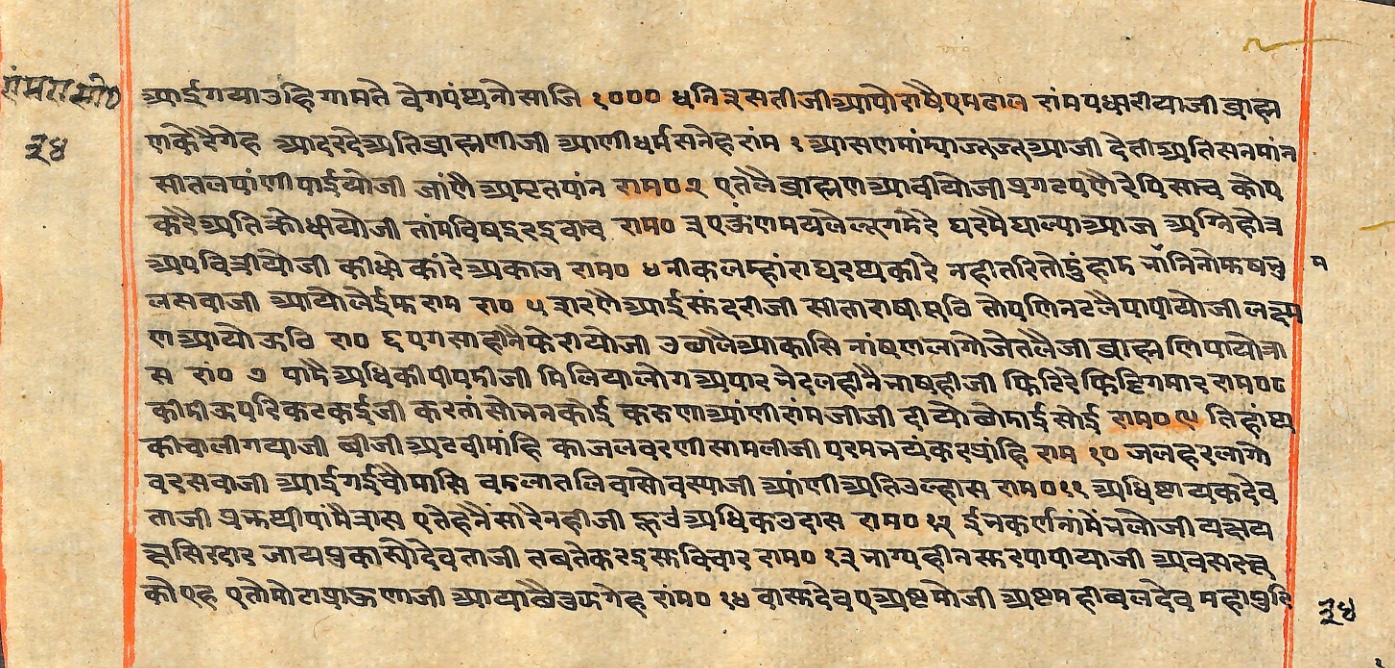 रांमरासो०
३४
आईगयाउहिगामते वेगपंथनोसाजि १००० धनि३सतीजीआपोराषैएमढाल रांमपधारीयाजी ब्राह्म
णकेरेगेह आदरदेअतिब्राह्मणीजी आणीधर्मसनेह रांम १ आसणमांम्याजूजूआजी देतीअतिसनमांन
सीतलपांणीपाईयोजी जांणै अमृतपांन राम०२ एतेलै ब्राह्मणआवीयोजी प्रगटपणैरेपिसाच कोप
करैअतिक्रोधीयोजी तांमविषइरइवाच राम० ३ एऊणमयलेलूगमेरे घरमैघाल्याआज अग्निहोत्र
अपवित्रीयोजी कीधो कांरेअकाज राम० ४ नीकलम्हांराघरथकीरे नहीतरितोडुंहाम
लसवाजी आयोलेईफरांम रा० ५ आईसुंदरीजी सीताराषीछवि तोपणिनटलैपापीयोजी लक्ष्म
णआयोऊवि रा० ६ पगसाहीनैफेरीयोजी उछालैआकासि नांषणलागोजेतलैजी ब्राह्मणिपायोत्रा
स रां० ७ अधिकीपीपदीजी मिलियालोगअपार राम०८
कीदीऊपरिकटकईजी करतांसोचनकोई करुणाआंणीरांमजीजी दीयो छोडाईसोई राम० ९ तिहांथ
कीचालीगयाजी बीजीअटवीमांहि काजलवरणीसामलीजी परमभयंकरप्रांहि राम १० जलहरलागो
वरसवाजी आईगईचौमासि वडलातलिवासोवस्याजी आंणीअतिउल्हास राम०११ अधिष्टायकदेव
ताजी प्रुझथीपांमैत्रास एतेहनैंसारेनहीजी हूउअधिकउदास राम० १२ ईभकर्णनांमेंभलोजी यक्षय
क्षसिरदार जायप्रकासोदेवताजी तबतेकरइसुविचार राम० १३ भाग्यहीनसुरपापीयाजी अवसरच्
कोएह एतोमोटाप्राऊणाजी आयाछैतुझगेह रांम० १४ वासुदेवएअष्टमोजी अष्टमहीबलदेव
म
३४